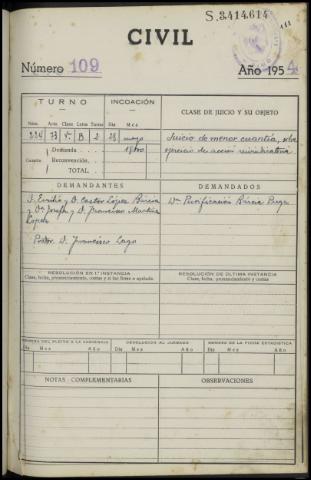 S.3414.614
CIVIL
Número 109 Año 1954
TURNO INCOACIÓN CLASE DE JUICIO Y SU OBJETO
Núm. Año Clase Letra Turno Día Mes
B 2 28 mayo Juicio de menor cuantía, sobre
Cuantía Demanda ejercicio de acción reivindicatoria
Reconvención
TOTAL
DEMANDANTES DEMANDADOS
D. Emilio y D. Castor López Dª Purificación
y Dª Josefa y D. Francisco
López
Procdor D. Francisco Lago
RESOLUCIÓN EN 1.ª INSTANCIA RESOLUCIÓN DE ÚLTIMA INSTANCIA
Clase, fecha, pronunciamiento, costas y si fue firme o apelada Clase, fecha, pronunciamiento y costas
REMESA DEL PLEITO A LA AUDIENCIA DEVOLUCIÓN AL JUZGADO REMISIÓN DE LA FICHA ESTADÍSTICA
Día Mes Año Día Mes Año Día Mes Año
NOTAS COMPLEMENTARIAS OBSERVACIONES